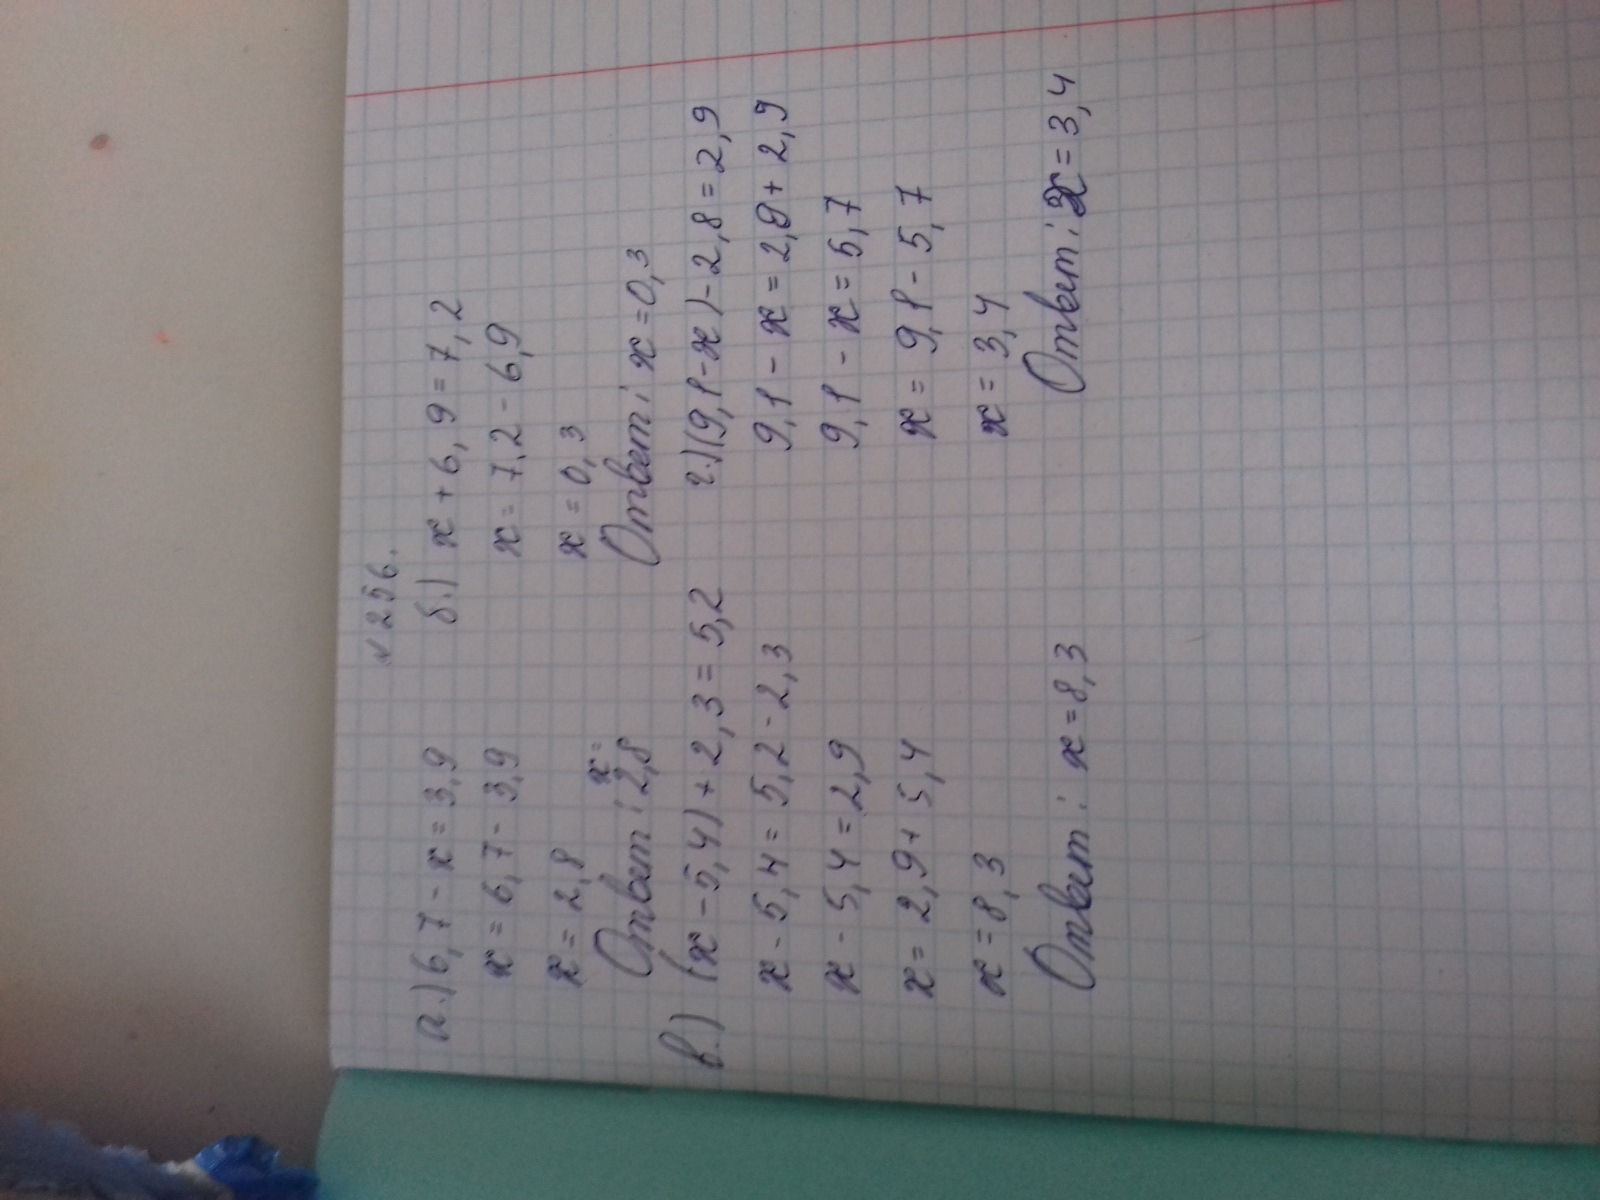 №256.
а.) 6,7 - x = 3,9
x = 6,7 - 3,9
x = 2,8
Ответ: x = 2,8
б.) x + 6,9 = 7,2
x = 7,2 - 6,9
x = 0,3
Ответ: x = 0,3
в.) (x - 5,4) + 2,3 = 5,2
x - 5,4 = 5,2 - 2,3
x - 5,4 = 2,9
x = 2,9 + 5,4
x = 8,3
Ответ: x = 8,3
г.) (9,1 - x) - 2,8 = 2,9
9,1 - x = 2,8 + 2,9
9,1 - x = 5,7
x = 9,1 - 5,7
x = 3,4
Ответ: x = 3,4